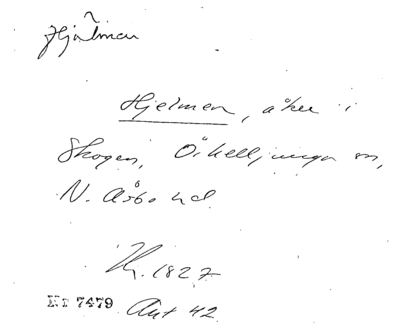 Hjälmen
Hjelmen, åker i
Skogen, Örkelljunga sn,
N. Åsbo hd
Kr. 1827
Nr 7479 Aut 42